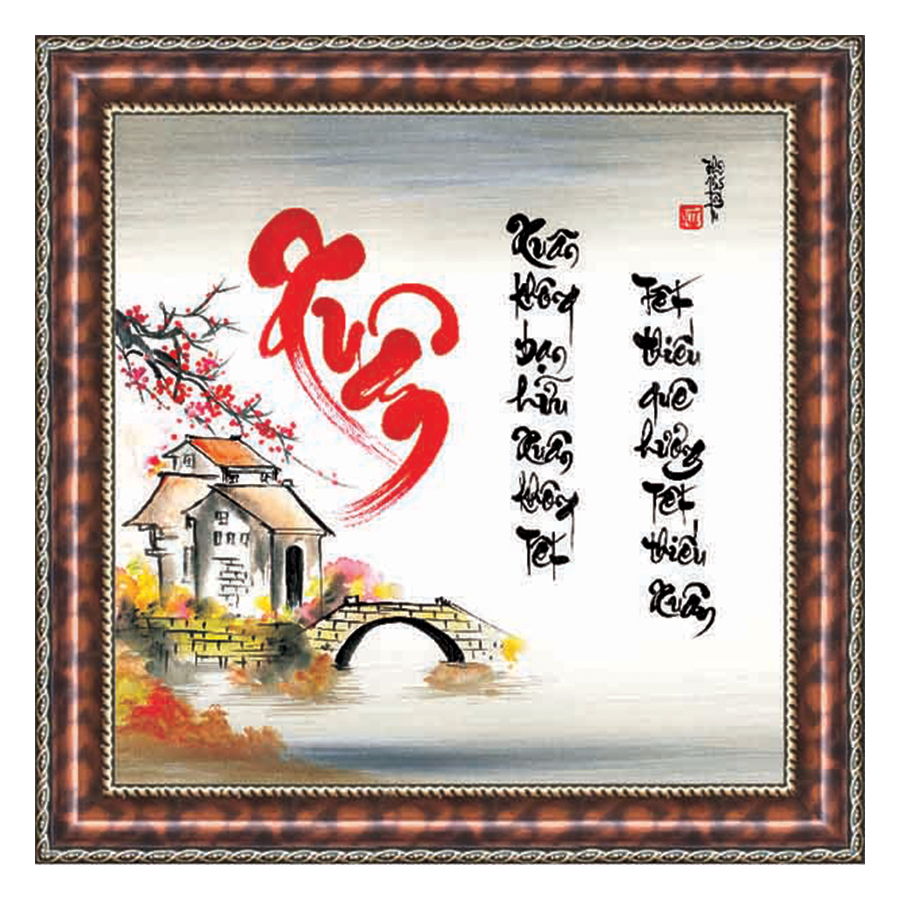 Xuân
Xuân không bạn hữu Xuân không Tết
Tết thiếu quê hương Tết thiếu Xuân